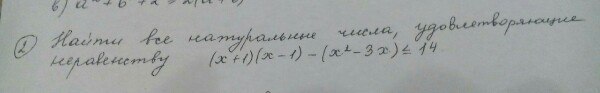 б) a² + b² + 2 ≥ 2(a+b)
② Найти все натуральные числа, удовлетворяющие
неравенству (x+1)(x-1) - (x² - 3x) ≤ 14